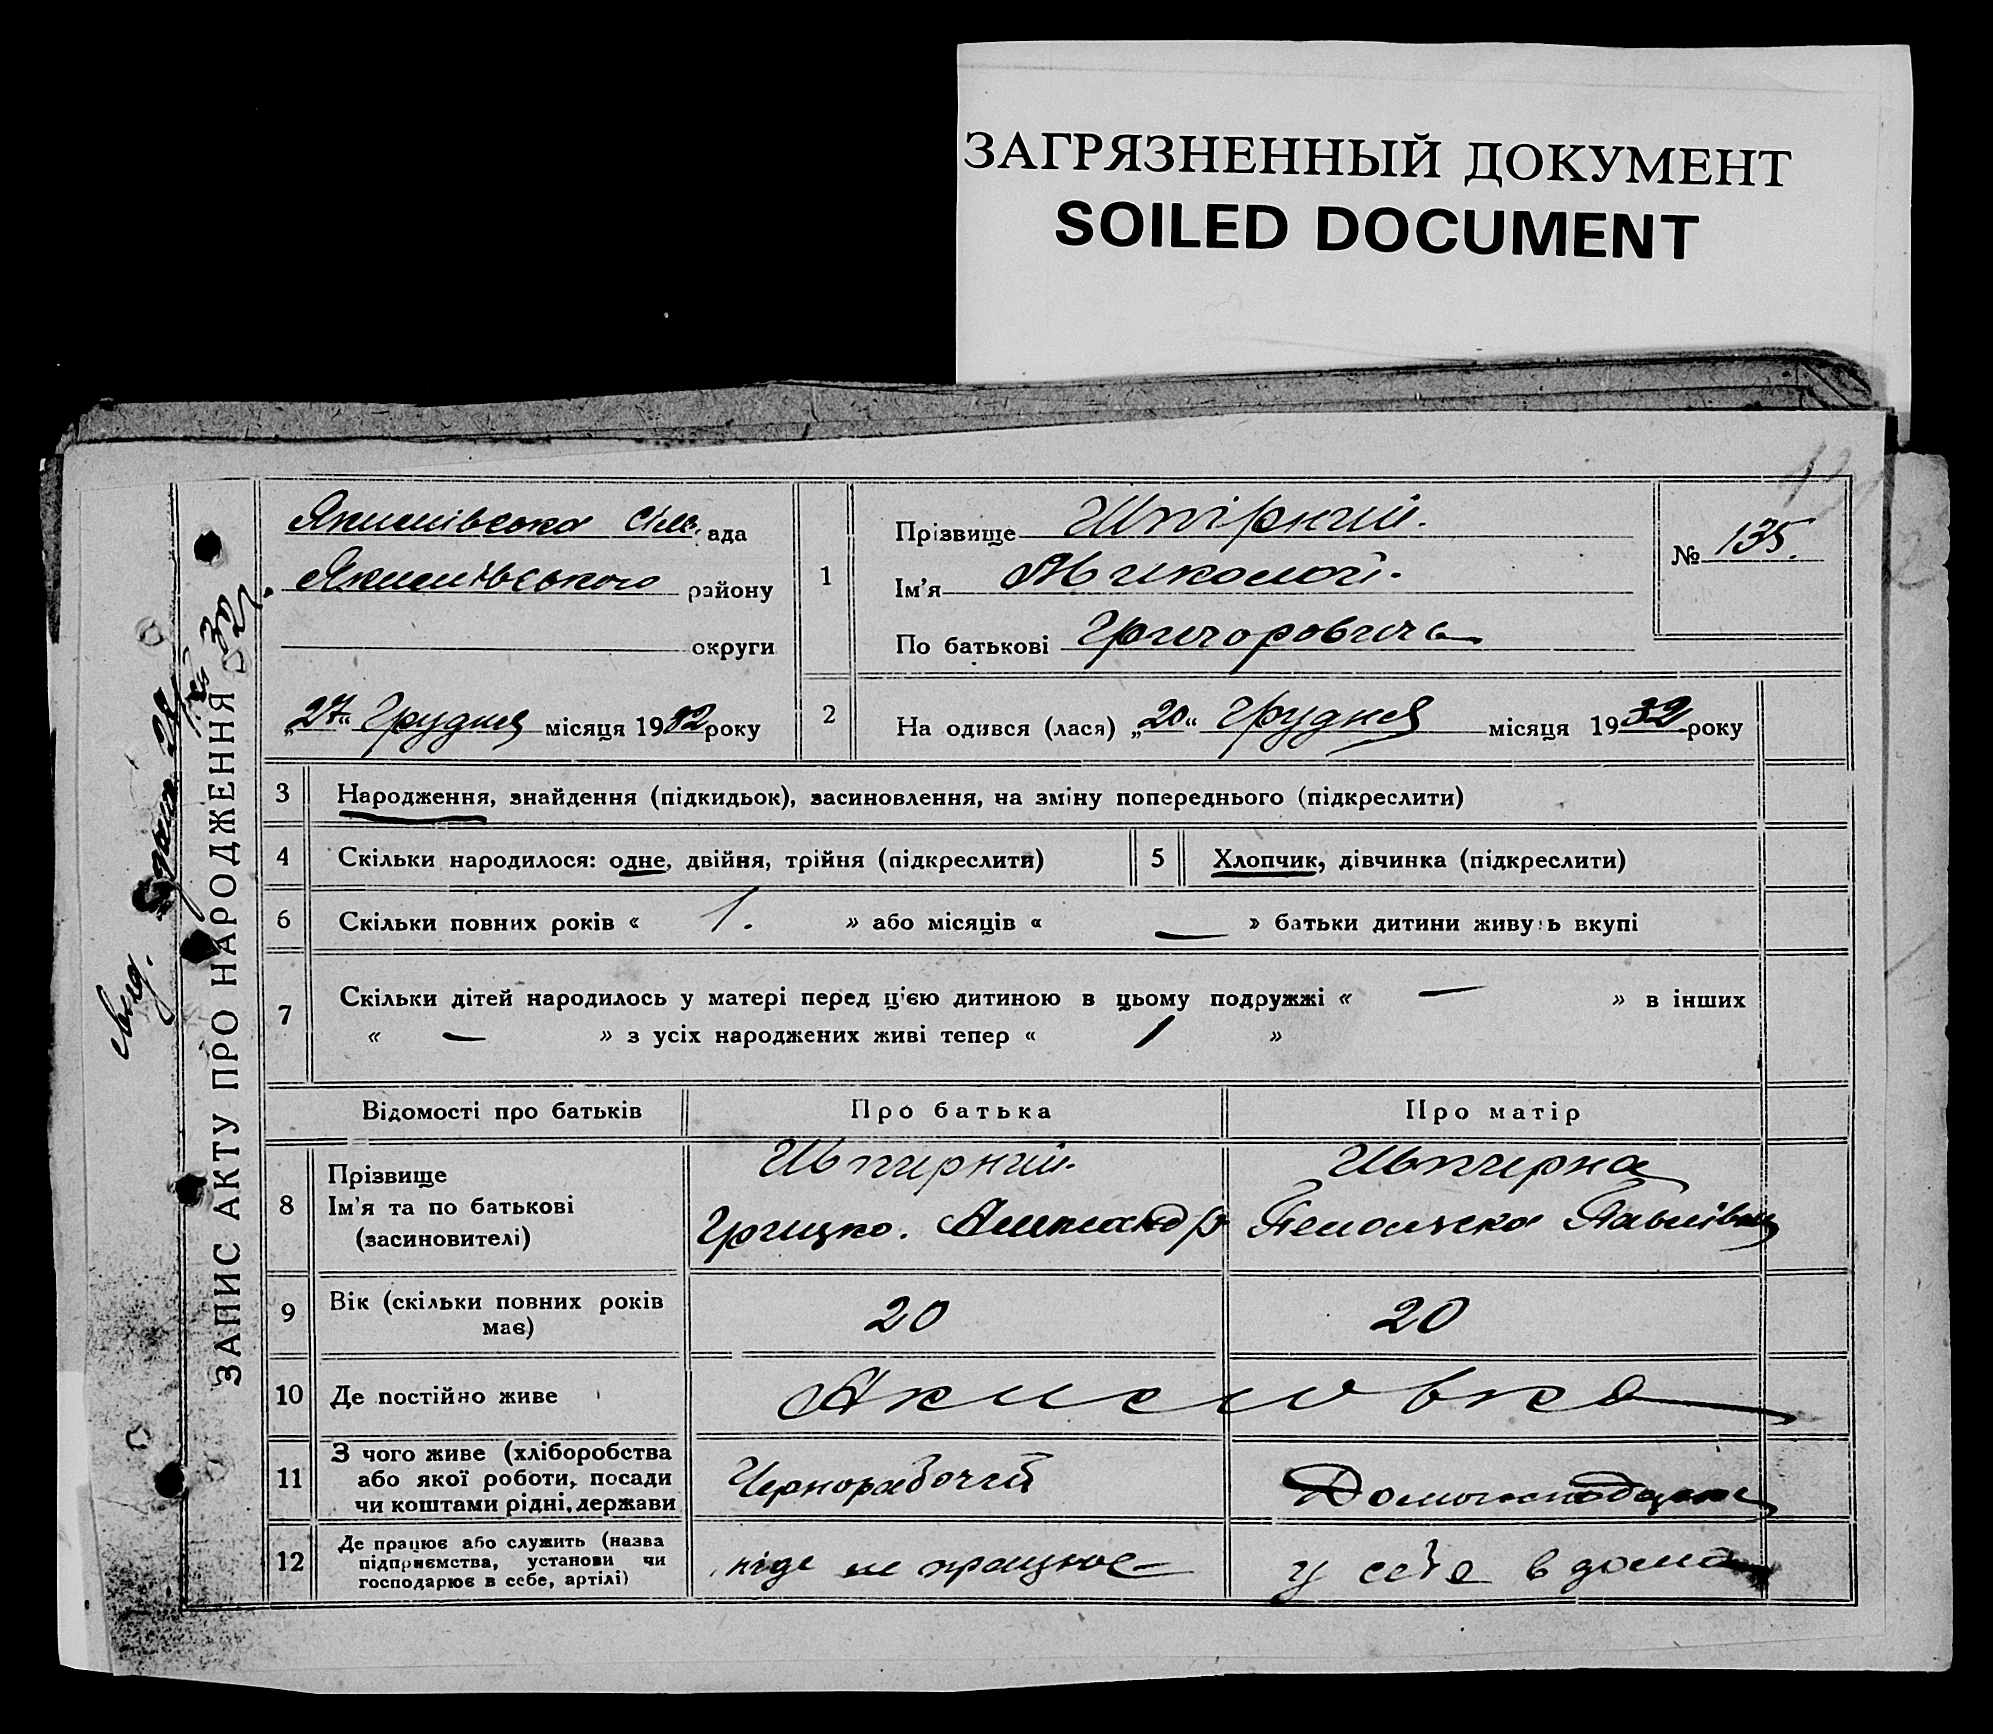 ЗАГРЯЗНЕННЫЙ ДОКУМЕНТ
SOILED DOCUMENT
ЗАПИС АКТУ ПРО НАРОДЖЕННЯ
Якимівська сіль ада
Якимівського району
округи
„27“ Грудня місяця 1932 року
1
Прізвище Шпірний.
Ім'я Миколай.
По батькові Григорович
№ 135.
2
На одився (лася) „20“ Грудня місяця 1932 року
3 Народження, знайдення (підкидьок), засиновлення, на зміну попереднього (підкреслити)
4 Скільки народилося: одне, двійня, трійня (підкреслити) 5 Хлопчик, дівчинка (підкреслити)
6 Скільки повних років « 1. » або місяців « — » батьки дитини живу ь вкупі
7 Скільки дітей народилось у матері перед ц'єю дитиною в цьому подружжі « — » в інших
« — » з усіх народжених живі тепер « 1 »
Відомості про батьків Про батька Про матір
8 Прізвище Шпирний. Шпирна
Ім'я та по батькові Грицько. Павлівна
(засиновителі)
9 Вік (скільки повних років має) 20 20
10 Де постійно живе Акимовка
11 З чого живе (хліборобства або якої роботи, посади чи коштами рідні, держави Чернорабочий
12 Де працює або служить (назва підприємства, установи чи господарює в себе, артілі) ніде не працює у себе в дома